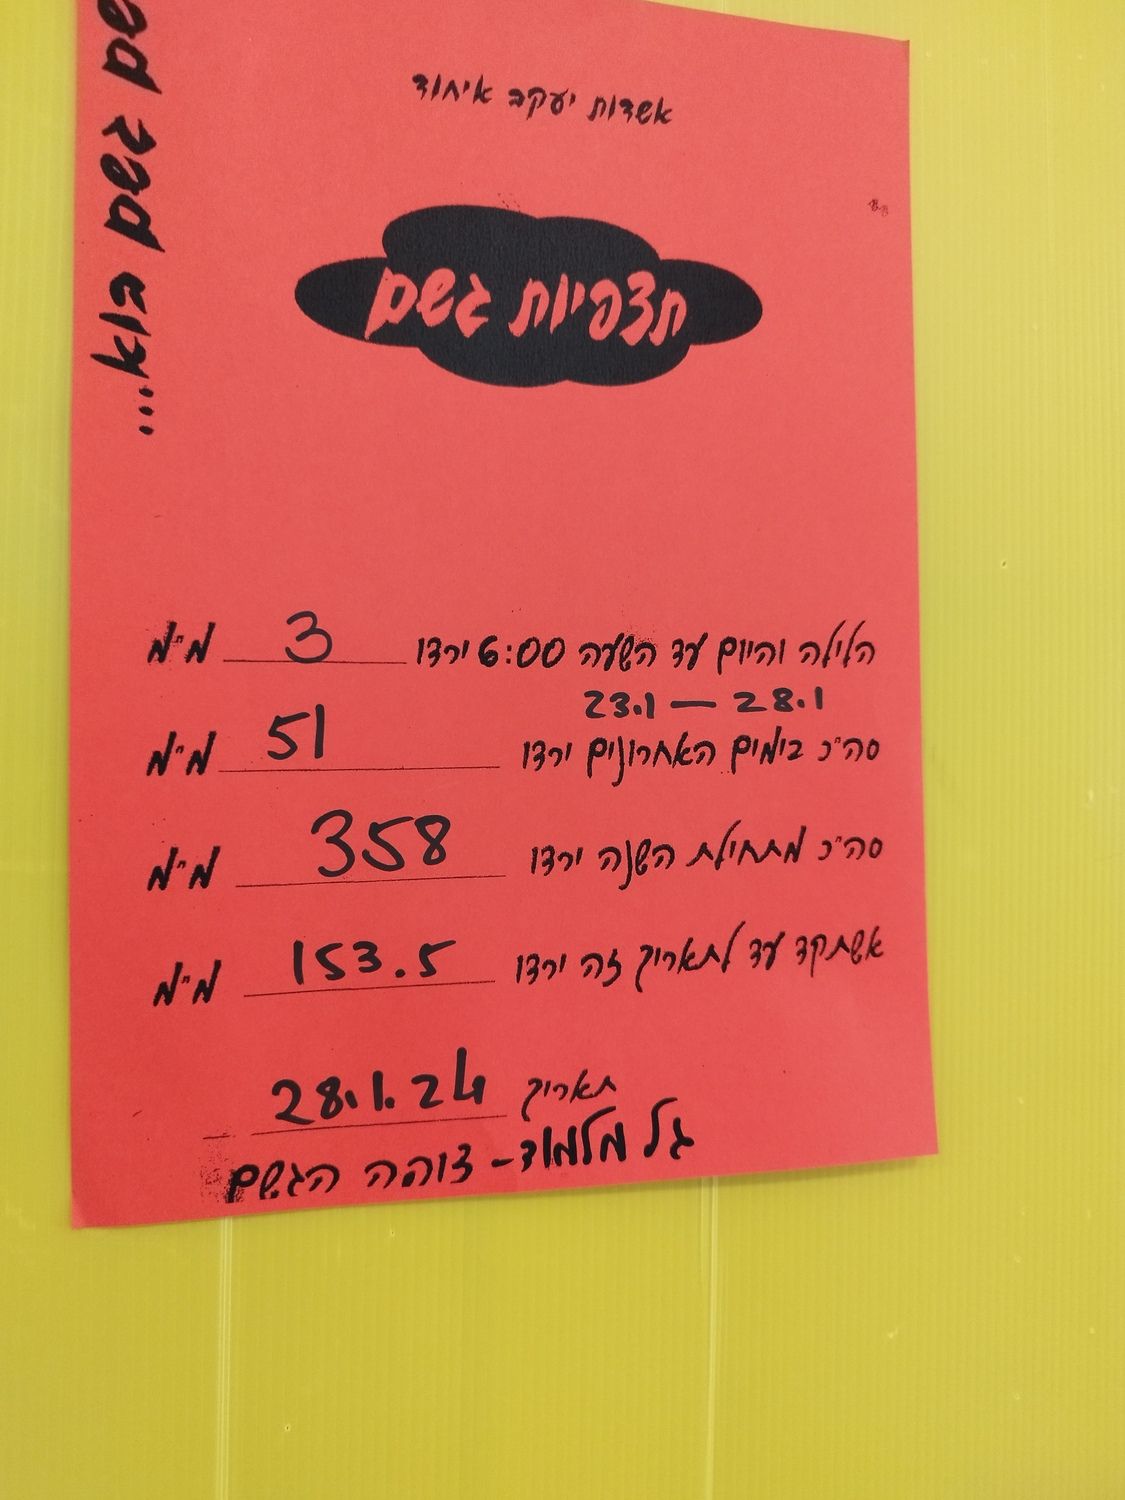 אשדות יעקב איחוד
תצפיות גשם
הלילה והיום עד השעה 6:00 ירדו 3 מ"מ
23.1 — 28.1
סה"כ בימים האחרונים ירדו 51 מ"מ
סה"כ מתחילת השנה ירדו 358 מ"מ
אשתקד עד לתאריך זה ירדו 153.5 מ"מ
תאריך 28.1.24
גל מלמוד - צופה הגשם
גשם בוא...